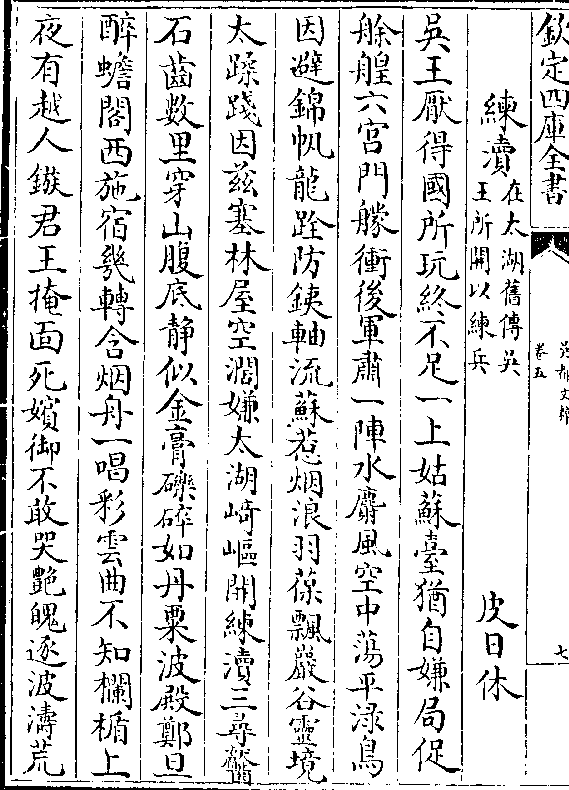 欽定四庫全書
吳都文粹
卷五
七
練瀆 在太湖舊傳吳王所開以練兵 皮日休
吳王厭得國所玩終不足一上姑蘇臺猶自嫌局促
艅艎六宮門艨衝後軍肅一陣水麝風空中蕩平渌鳥
因避錦帆龍跧防鐵軸流蘇惹烟浪羽葆飄巖谷靈境
太蹂踐因兹塞林屋空濶嫌太湖崎嶇開練瀆三尋齾
石齒數里穿山腹底静似金膏礫碎如丹粟波殿鄭旦
醉蟾閣西施宿幾轉含烟舟一唱彩雲曲不知欄楯上
夜有越人鏃君王掩面死嬪御不敢哭艷魄逐波濤荒